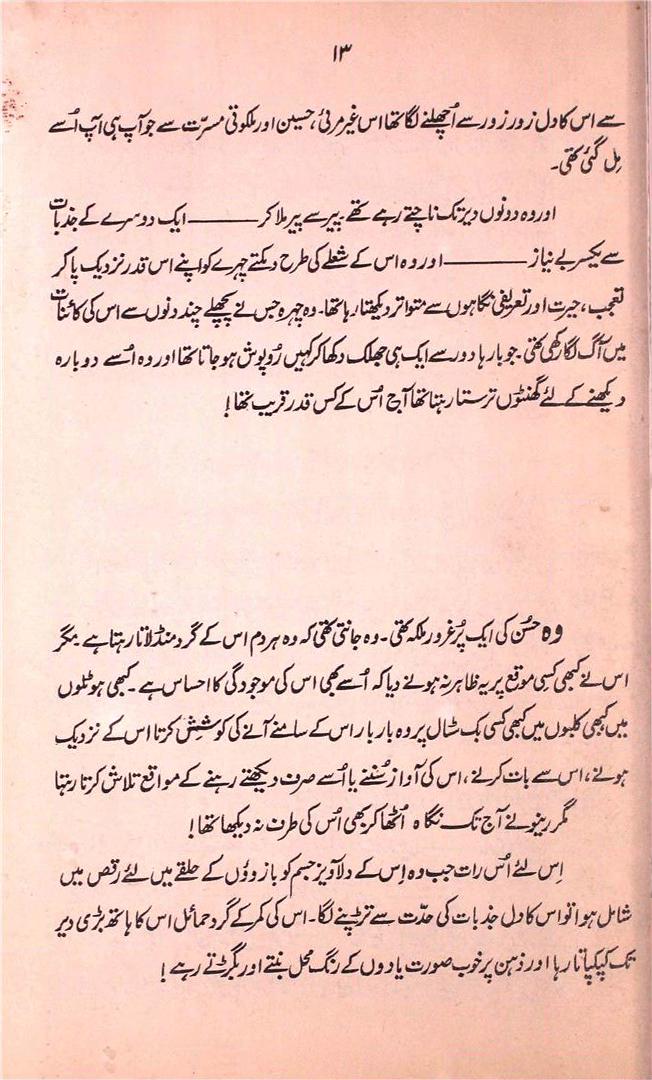 ۱۳
سے اس کا دل زور زور سے اُچھلنے لگا تھا اس غیر مرئی، حسین اور ملکوتی مسرّت سے جو آپ ہی آپ اُسے
مِل گئی تھی۔
اور وہ دونوں دیر تک ناچتے رہے تھے۔ پیر سے پیر ملا کر ——— ایک دوسرے کے جذبات
سے یکسر بے نیاز ——— اور وہ اس کے شعلے کی طرح دہکتے چہرے کو اپنے اس قدر نزدیک پا کر
تعجب، حیرت اور تعریفی نگاہوں سے متواتر دیکھتا رہا تھا۔ وہ چہرہ جس نے پچھلے چند دنوں سے اس کی کائنات
میں آگ لگا رکھی تھی۔ جو بارہا دور سے ایک ہی جھلک دکھا کر کہیں رُوپوش ہو جاتا تھا اور وہ اُسے دوبارہ
دیکھنے کے لئے گھنٹوں ترستا رہتا تھا آج اُس کے کس قدر قریب تھا!
وہ حسُن کی ایک پُر غرور ملکہ تھی۔ وہ جانتی تھی کہ وہ ہر دم اس کے گرد منڈلاتا رہتا ہے۔ مگر
اس نے کبھی کسِی موقع پر یہ ظاہر نہ ہونے دیا کہ اُسے بھی اس کی موجودگی کا احساس ہے۔ کبھی ہوٹلوں
میں کبھی کلبوں میں کبھی کسی بک سٹال پر وہ بار بار اس کے سامنے آنے کی کوشِش کرتا اس کے نزدیک
ہونے، اس سے بات کرنے، اس کی آواز سُننے یا اُسے صرف دیکھتے رہنے کے مواقع تلاش کرتا رہتا
مگر رینو نے آج تک نگاہ اُٹھا کر بھی اُس کی طرف نہ دیکھا تھا!
اِس لئے اُس رات جب وہ اِس کے دلآویز جسم کو بازوؤں کے حلقے میں لئے رقص میں
شامل ہوا تو اس کا دل جذبات کی حدّت سے تڑپنے لگا۔ اس کی کمر کے گرد حمائل اس کا ہاتھ بڑی دیر
تک کپکپاتا رہا اور ذہن پر خوب صورت یادوں کے رنگ محل بنتے اور بگڑتے رہے!